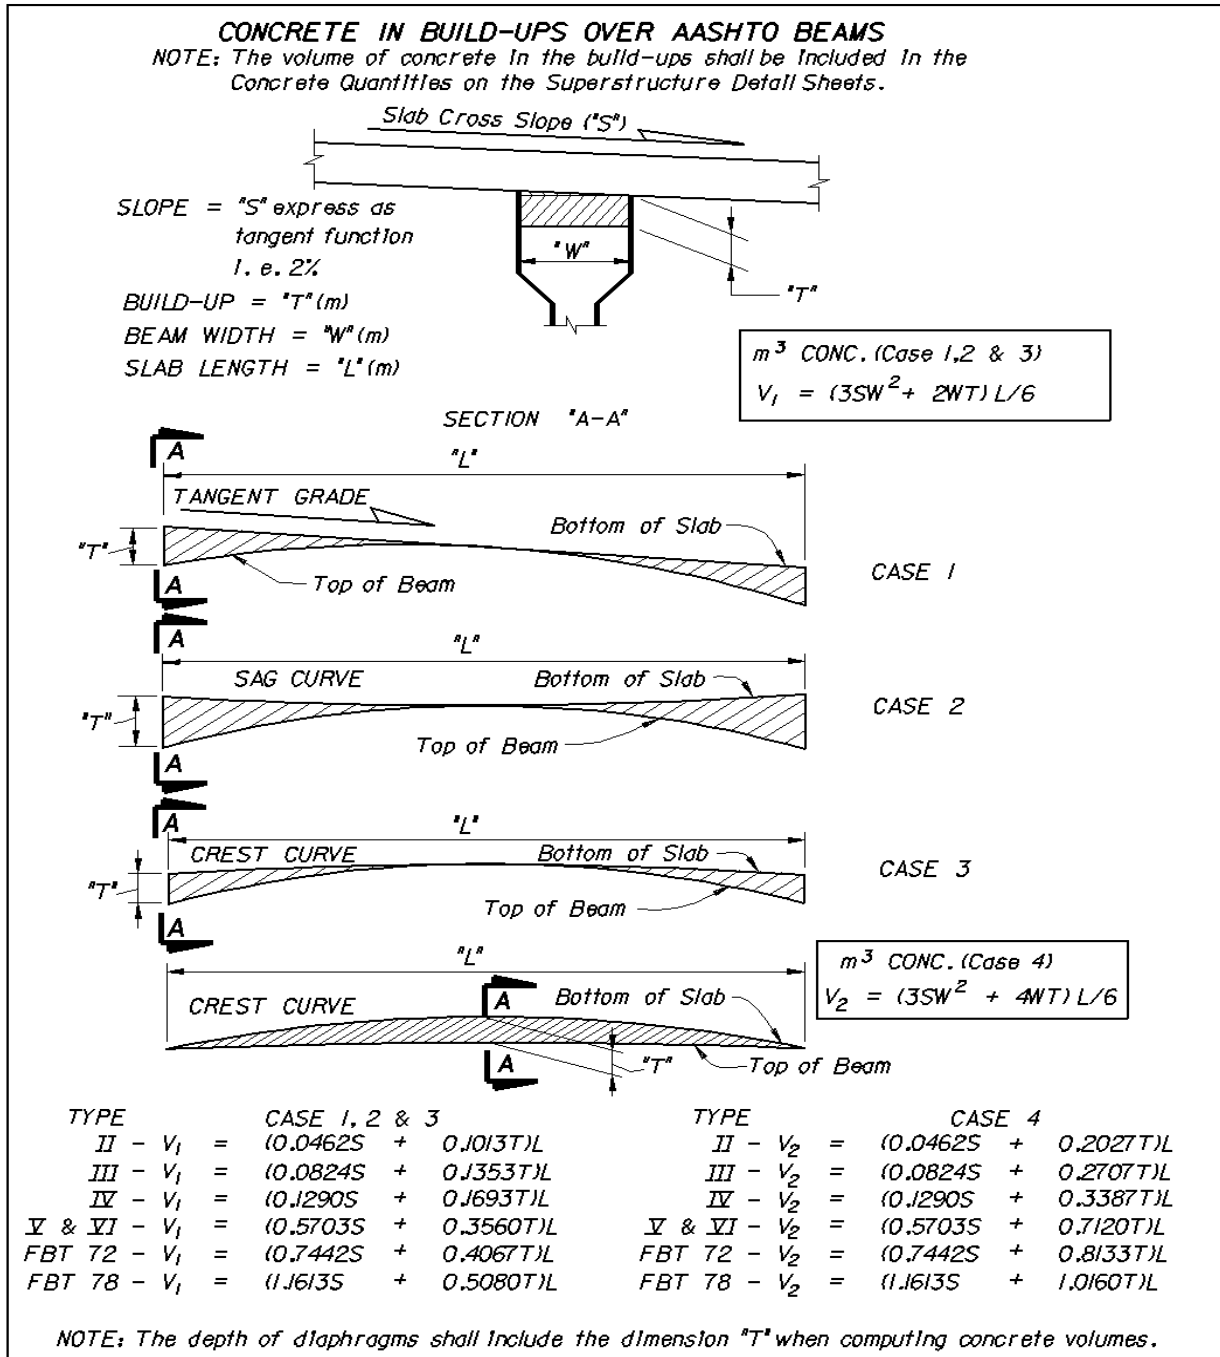 CONCRETE IN BUILD-UPS OVER AASHTO BEAMS
NOTE: The volume of concrete in the build-ups shall be included in the
Concrete Quantities on the Superstructure Detail Sheets.
Slab Cross Slope ("S")
SLOPE = "S" express as
tangent function
i.e. 2%
BUILD-UP = "T" (m)
BEAM WIDTH = "W" (m)
SLAB LENGTH = "L" (m)
"W"
"T"
m³ CONC. (Case 1,2 & 3)
V₁ = (3SW² + 2WT) L/6
SECTION "A-A"
A
"L"
TANGENT GRADE
Bottom of Slab
"T"
Top of Beam
CASE 1
A
A
"L"
SAG CURVE
Bottom of Slab
CASE 2
"T"
Top of Beam
A
A
"L"
CREST CURVE
Bottom of Slab
CASE 3
"T"
Top of Beam
A
"L"
m³ CONC. (Case 4)
V₂ = (3SW² + 4WT) L/6
CREST CURVE
A
Bottom of Slab
A
"T"
Top of Beam
TYPE CASE 1, 2 & 3
II - V₁ = (0.0462S + 0.1013T)L
III - V₁ = (0.0824S + 0.1353T)L
IV - V₁ = (0.1290S + 0.1693T)L
V & VI - V₁ = (0.5703S + 0.3560T)L
FBT 72 - V₁ = (0.7442S + 0.4067T)L
FBT 78 - V₁ = (1.1613S + 0.5080T)L
TYPE CASE 4
II - V₂ = (0.0462S + 0.2027T)L
III - V₂ = (0.0824S + 0.2707T)L
IV - V₂ = (0.1290S + 0.3387T)L
V & VI - V₂ = (0.5703S + 0.7120T)L
FBT 72 - V₂ = (0.7442S + 0.8133T)L
FBT 78 - V₂ = (1.1613S + 1.0160T)L
NOTE: The depth of diaphragms shall include the dimension "T" when computing concrete volumes.